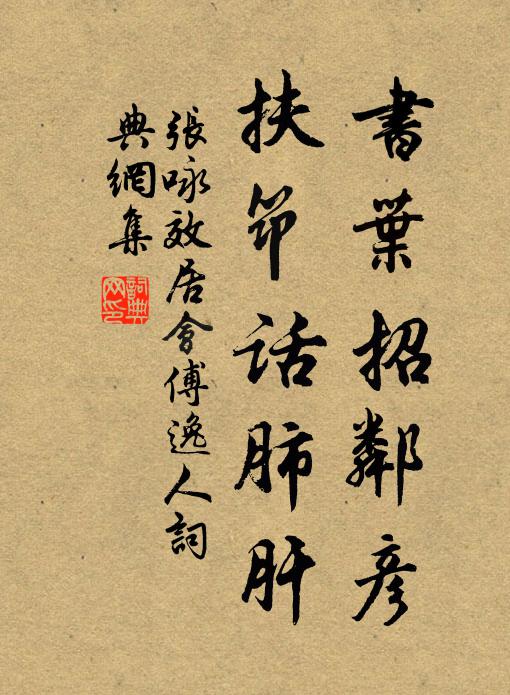 書葉招鄰彦
扶筇話肺肝
張咏效居會傅逸人詞
典網集
詞典網印